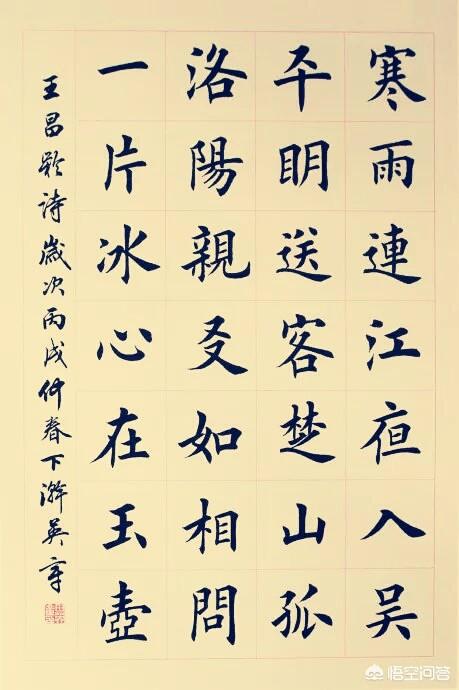 寒雨連江夜入吳
平明送客楚山孤
洛陽親友如相問
一片冰心在玉壺
王昌齡詩歲次丙戌仲春下澣英章
悟空问答